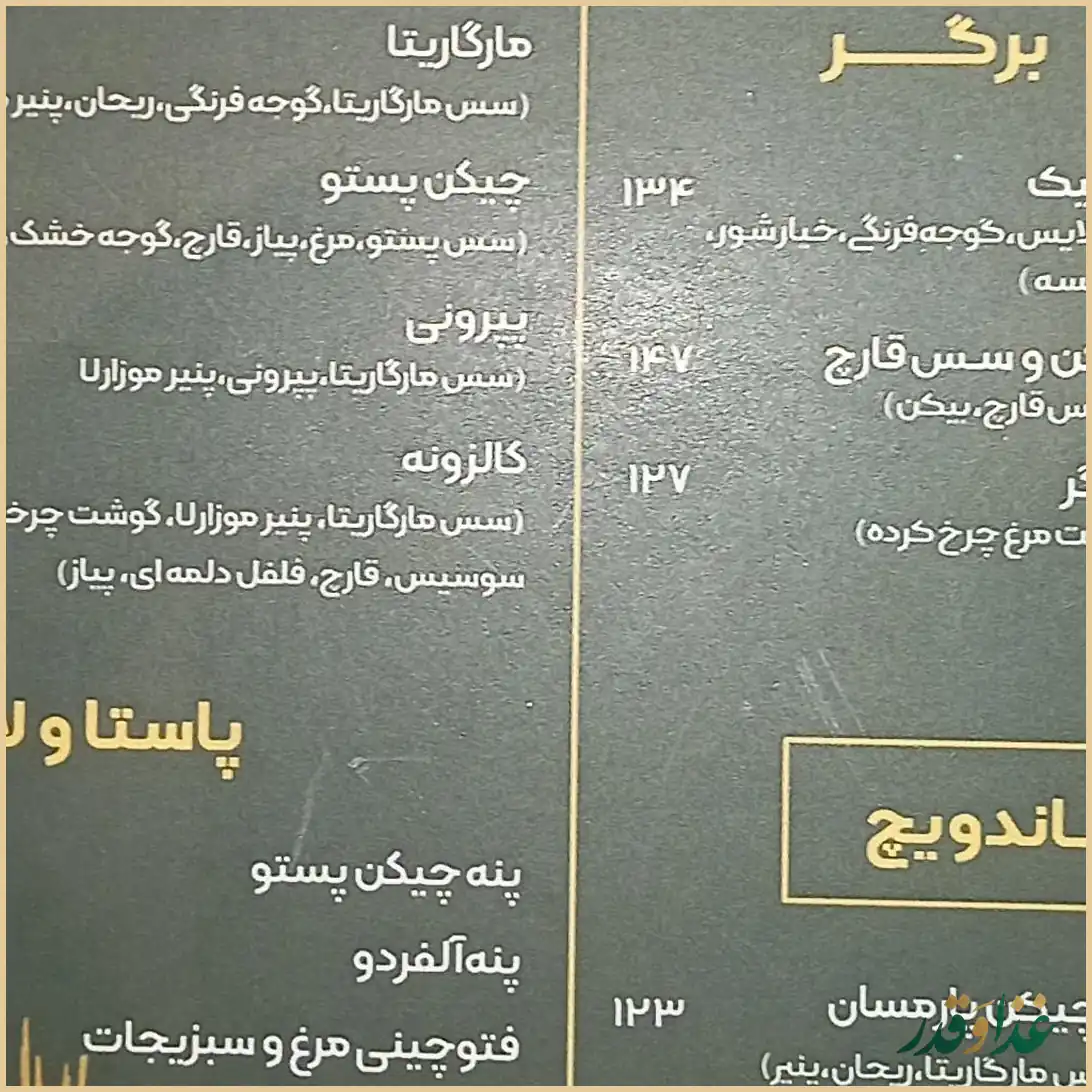 برگر
یک ۱۳۴
لایس، گوجه فرنگی، خیارشور،
سه)
ن و سس قارچ ۱۴۷
س قارچ، بیکن)
گر ۱۲۷
ت مرغ چرخ کرده)
اندویچ
چیکن پارمسان ۱۲۳
س مارگاریتا، ریحان، پنیر)
مارگاریتا
(سس مارگاریتا، گوجه فرنگی، ریحان، پنیر
چیکن پستو
(سس پستو، مرغ، پیاز، قارچ، گوجه خشک،
پپرونی
(سس مارگاریتا، پپرونی، پنیر موزارلا
کالزونه
(سس مارگاریتا، پنیر موزارلا، گوشت چرخ
سوسیس، قارچ، فلفل دلمه ای، پیاز)
پاستا و لا
پنه چیکن پستو
پنه آلفردو
فتوچینی مرغ و سبزیجات
غذا و قدر